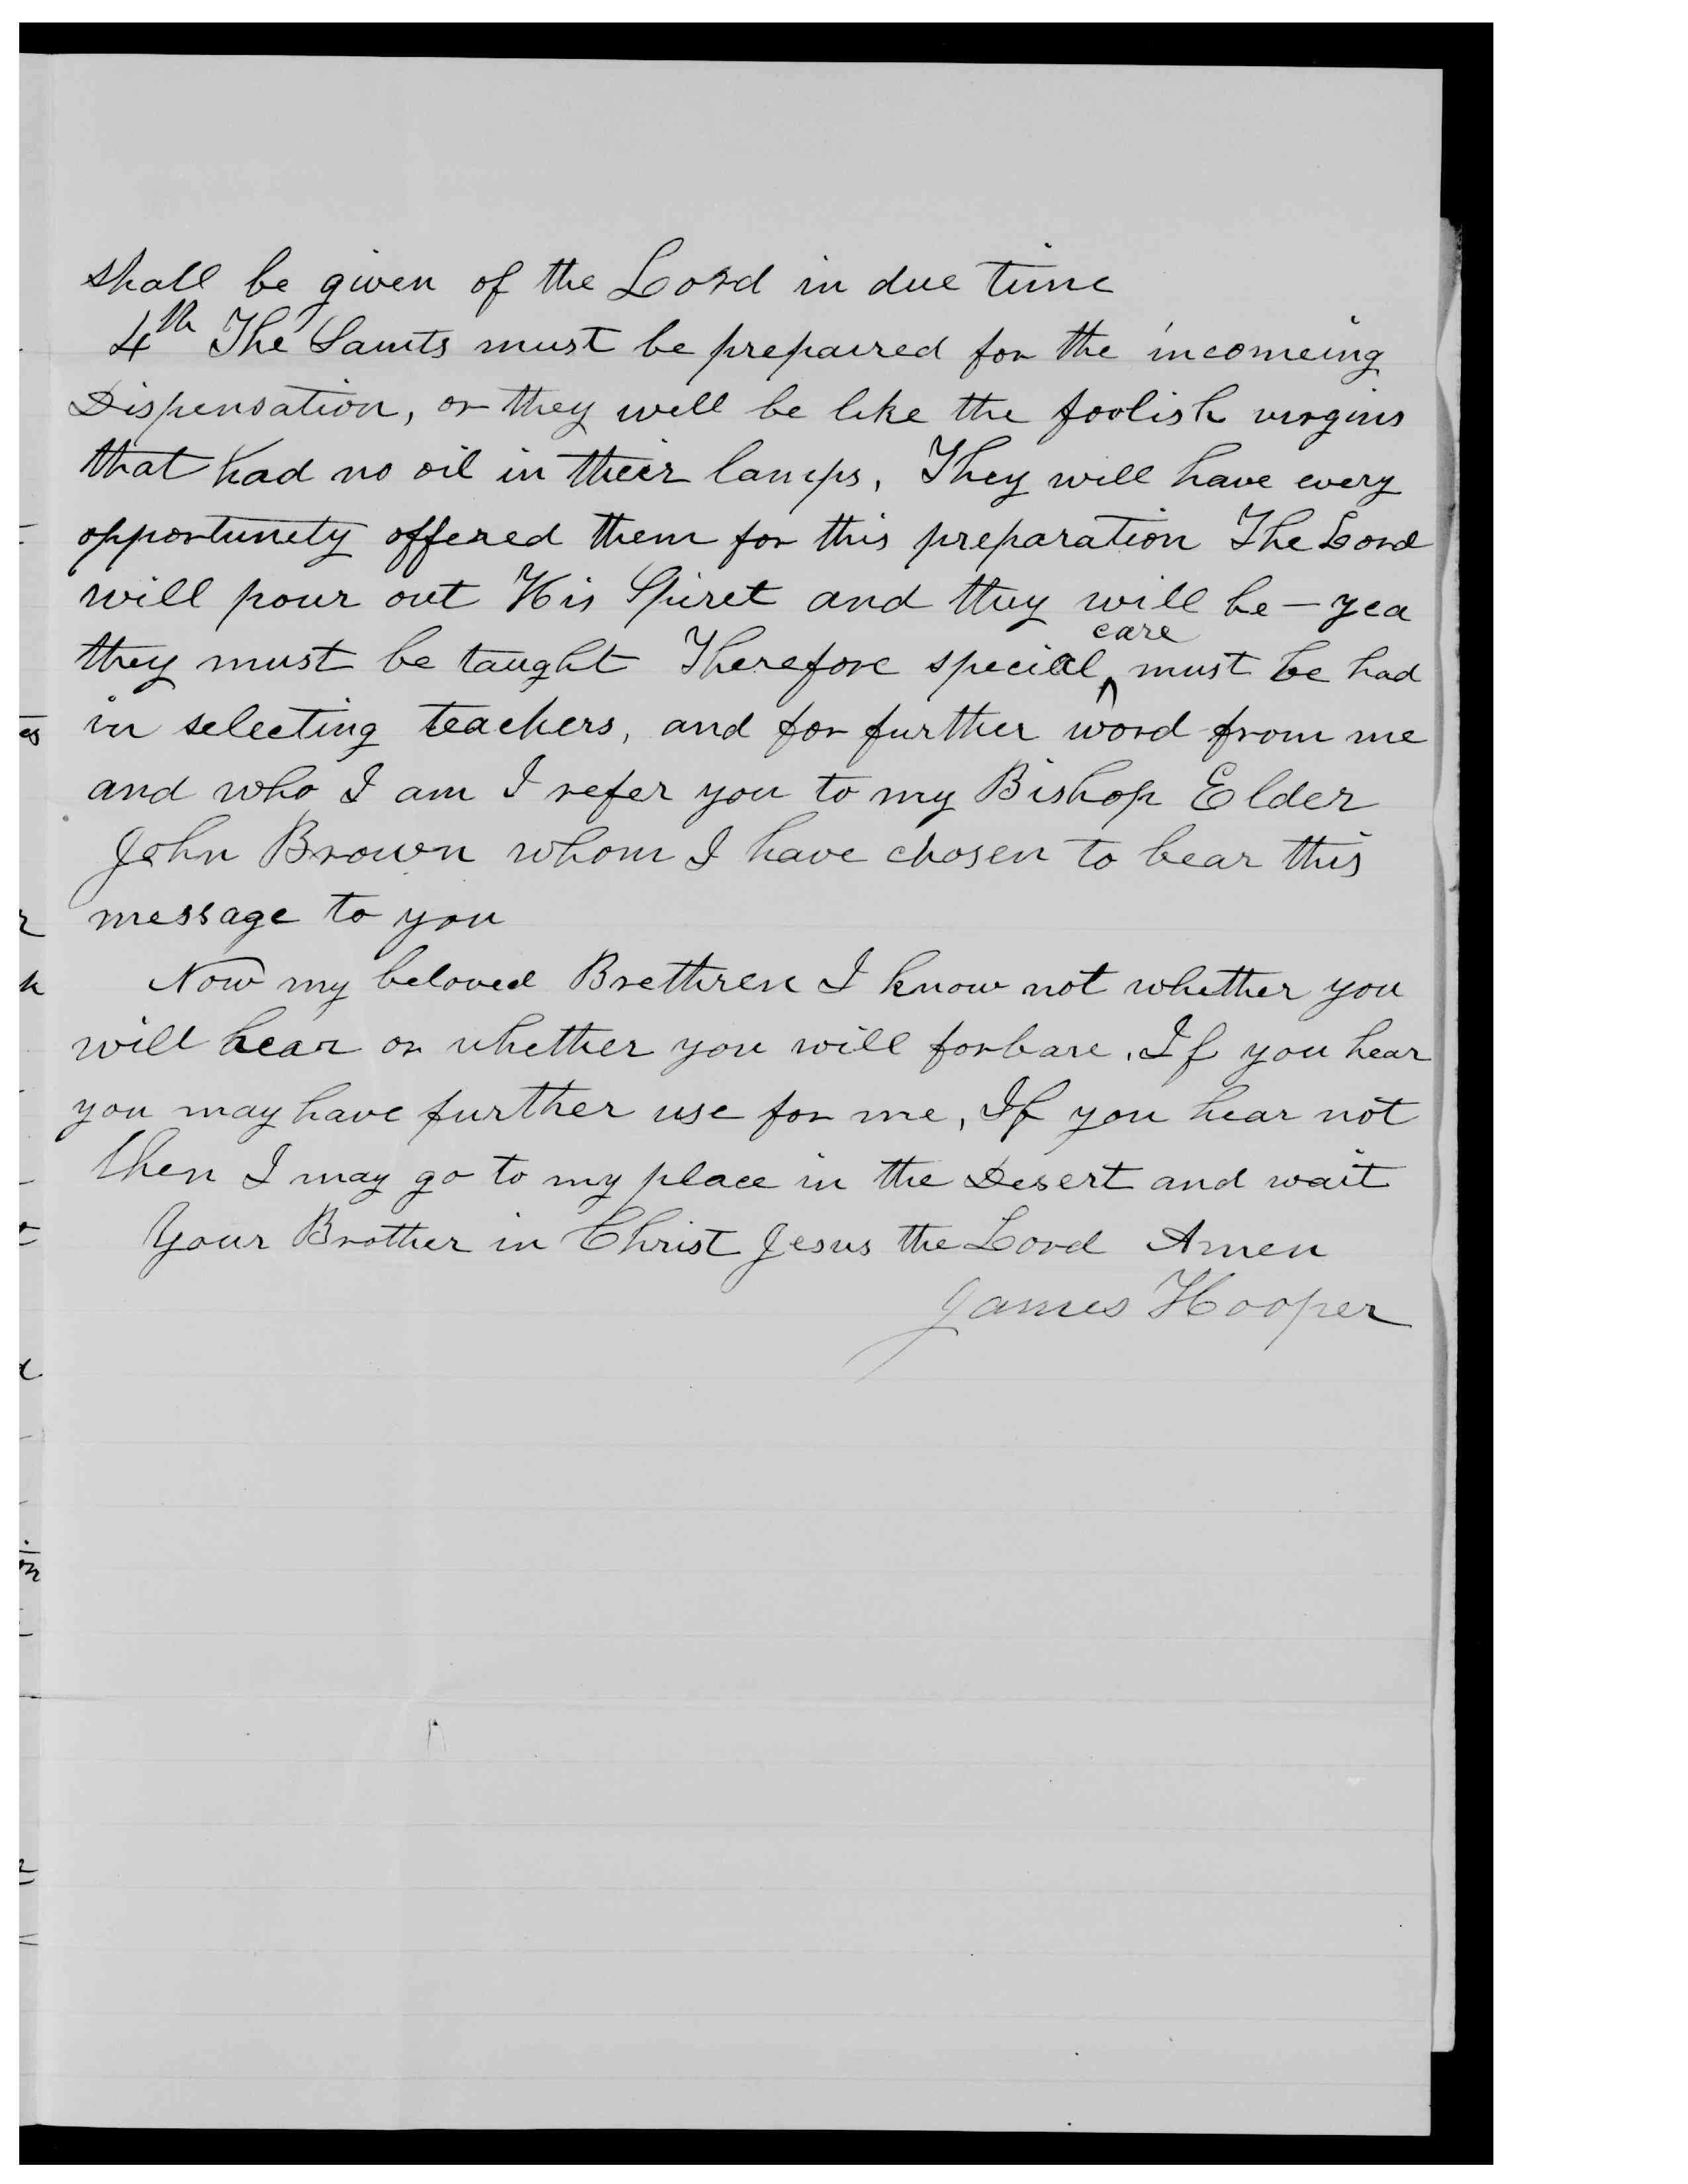 shall be given of the Lord in due time
4th The Saints must be prepaired for the incomeing
Dispensation, or they will be like the foolish virgins
that had no oil in their lamps, They will have every
opportunety offered them for this preparation The Lord
will pour out His Spiret and they will be - yea
care
they must be taught Therefore special ^ must be had
in selecting teachers, and for further word from me
and who I am I refer you to my Bishop Elder
John Brown whom I have chosen to bear this
message to you
Now my beloved Brethren I know not whether you
will hear or whether you will forbare. If you hear
you may have further use for me, If you hear not
then I may go to my place in the Desert and wait
Your Brother in Christ Jesus the Lord Amen
James Hooper